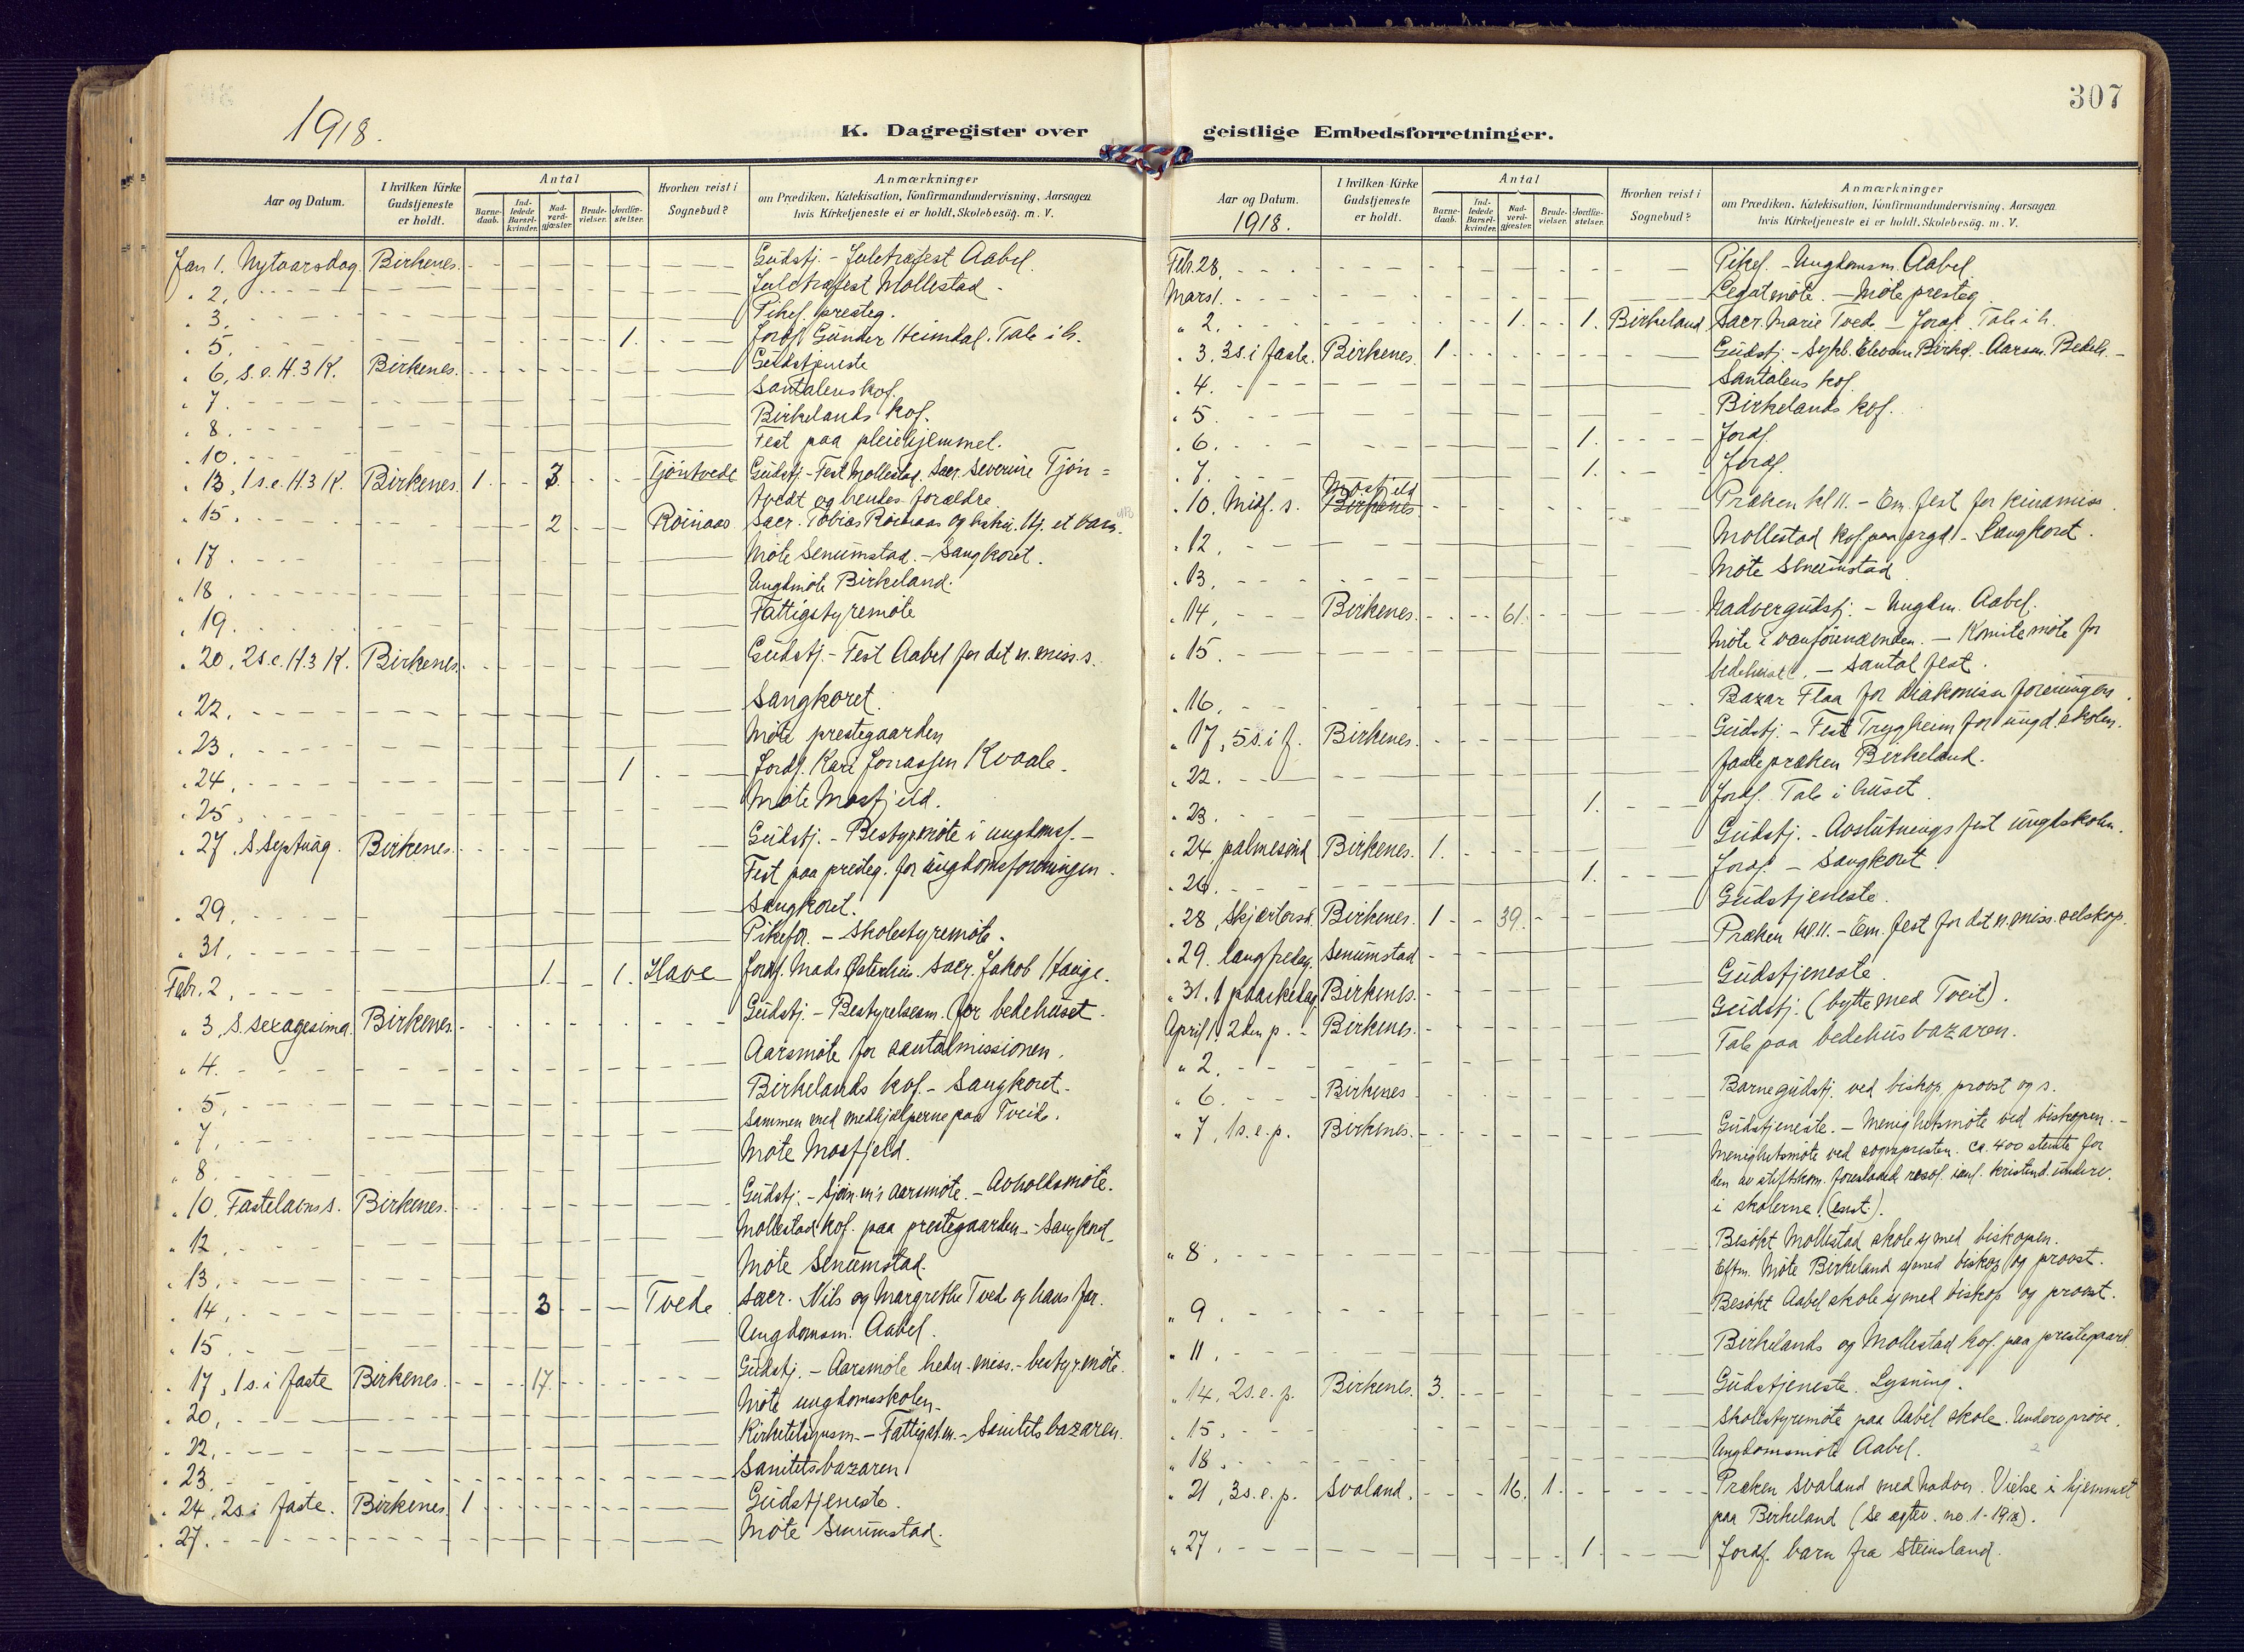 1918.
K. Dagregister over
Aar og Datum.
I hvilken Kirke Gudstjeneste er holdt.
Antal
Barne-daab.
Ind-ledede Barsel-kvinder.
Nad-verd-gjæster.
Brude-vielser.
Jordfæ-stelser.
Hvorhen reist i Sognebud?
Anmærkninger
om Prædiken, Katekisation, Konfirmandundervisning, Aarsagen
hvis Kirketjeneste ei er holdt, Skolebesøg. m. V.
Jan 1. Nytaarsdag. Birkenes. Gudstj. - Juletræfest Aabel.
" 2. Juletræfest Mollestad.
" 3. Pikef. presteg.
" 5. 1. Jordf. Gunder Heimdal. Tale i h.
" 6, s.e.H.3 K. Birkenes. Gudstjeneste
" 7. Santalens kof.
" 8. Birkelands kof.
" 10. Fest paa pleiehjemmet.
" 13, 1 s.e.H.3 K. Birkenes. 1. 3. Tjöntvedt Gudstj. - Fest Mollestad. Sacr. Severine Tjön=
tvedt og hendes forældre.
" 15. 2 Röinaas Sacr. Tobias Röinaas og hustru. Hj. et barn.
" 17. Möte Senumstad. - Sangkoret.
" 18. Ungdmöte Birkeland.
" 19. Fattigstyremöte
" 20, 2 s.e.H.3 K. Birkenes. Gudstj. - Fest Aabel for det n. miss. s.
" 22. Sangkoret.
" 23. Möte prestegaarden
" 24. 1 Jordf. Kari Jonassen Kvaale.
" 25. Möte Mosfjeld.
" 27 S. Septuag. Birkenes. Gudstj. - Bestyrmöte i ungdomsf. -
Fest paa presteg. for ungdomsforeningen.
" 29. Sangkoret.
" 31. Pikefor. - Skolestyremöte.
Febr. 2. 1. 1. Have Jordf. Mads Østerhus. Sacr. Jakob Hauge.
" 3 S. sexagesima. Birkenes. Gudstj. - Bestyrelsesm. for bedehuset.
" 4. Aarsmöte for santalmissionen.
" 5. Birkelands kof. - Sangkoret.
" 7. Sammen med medhjælperne paa Tveide.
" 8. Möte Mosfjeld.
" 10. Fastelavns s. Birkenes. Gudstj. - Sjöm. m's aarsmöte. - Avholdsmöte.
" 12. Mollestad kof. paa prestegaarden. - Sangkoret.
" 13. Möte Senumstad.
" 14. 3 Tvede Sacr. Nils og Margrethe Tvede og hans far.
" 15. Ungdomsm. Aabel.
" 17, 1 s. i faste Birkenes. 17. Gudstj. - Aarsmöte hedn. miss. - bestyr.möte.
" 20. Möte ungdomsskolen.
" 22. Kirketilsynsm. - Fattigst.m. - Sanitetsbazaren.
" 23. Sanitetsbazaren
" 24, 2 s. i faste. Birkenes. 1 Gudstjeneste.
" 27. Möte Senumstad.
307
geistlige Embedsforretninger.
Aar og Datum.
1918.
I hvilken Kirke Gudstjeneste er holdt.
Antal
Barne-daab.
Ind-ledede Barsel-kvinder.
Nad-verd-gjæster.
Brude-vielser.
Jordfæ-stelser.
Hvorhen reist i Sognebud?
Anmærkninger
om Prædiken, Katekisation, Konfirmandundervisning, Aarsagen
hvis Kirketjeneste ei er holdt, Skolebesøg. m. V.
Febr. 28. Pikef. - Ungdomsm. Aabel.
Mars 1. Legatmöte. - Möte presteg.
" 2. 1. 1. Birkeland Sacr. Marie Tvede. - Jordf. Tale i h.
" 3. 3 s. i faste. Birkenes. 1. Gudstj. - Aarsm. Bedeh. -
" 4. Santalens kof.
" 5 Birkelands kof.
" 6. 1. Jordf.
" 7. 1. Jordf.
" 10. Midf. s. Birkenes Mosfjeld Præken kl 11. - Em. fest for kinamiss.
" 12. Mollestad kof paa prgd. - Sangkoret.
" 13. Möte Senumstad
" 14. Birkenes. 61. Nadvergudstj. - Ungdm. Aabel.
" 15. Möte i vanförenævnden. - Komitemöte for
bedehuset. - Santalfest.
" 16. Bazar Flaa for diakonisseforeningen.
" 17, 5 s. i f. Birkenes. Gudstj. - Fest Trygheim for ungd.skolen.
" 22. Fastepræken Birkeland.
" 23. 1. Jordf. Tale i huset.
" 24. palmesönd. Birkenes. 1. Gudstj. - Avslutningsfest ungdskolen.
" 26. 1. Jordf. - Sangkoret.
" 28, Skjærtorsd. Birkenes. 1 39. Gudstjeneste.
" 29. langfredag. Senumstad Præken kl. 11. - Em. fest for det n. miss. selskap.
" 31. 1 paaskedag Birkenes. Gudstjeneste.
April 1. 2den p. Birkenes. Gudstj. (bytte med Tveit).
" 2. Tale paa bedehusbazaren.
" 6. Birkenes Barnegudstj. ved biskop, provst og s.
" 7, 1 s.e.p. Birkenes. Gudstjeneste. - Menighetsmöte ved biskopen. -
Menighetsmöte ved sognepresten. Ca. 400 stemte for
den av stiftskom. foreslaaede resol. kristend. underv.
i skolerne. (enst.).
" 8. Besökt Mollestad skole med biskopen.
Eftm. Möte Birkeland med biskop og provst.
" 9. Besökt Aabel skole med biskop og provst.
" 11. Birkelands og Mollestad kof. paa prestegaard.
" 14, 2 s.e.p. Birkenes. 3. Gudstjeneste. Lysning.
" 15. Skolestyremöte paa Aabel skole. Underv.pröve.
" 18. Ungdomsmöte Aabel.
" 21, 3 s.e.p. Svaland. 16. 1. Præken Svaland med nadver. Vielse i hjemmet
paa Birkeland (se egtev. no. 1 - 1918).
" 27. 1. Jordf. barn fra Steinsland.